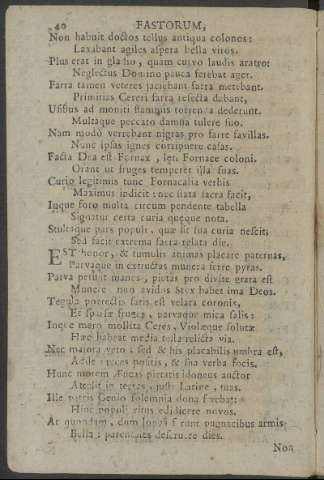 40 FASTORUM,
Non habuit doctos tellus antiqua colonos:
Laxabant agiles aspera bella viros.
Plus erat in gladio, quam curvo laudis aratro:
Neglectus Domino pauca ferebat ager.
Farra tamen veteres jaciebant farra metebant.
Primitias Cereri farra resecta dabant,
Usibus ad moniti flammis torrenda dederunt.
Multaque peccato damna tulere suo.
Nam modò verrebant nigras pro farre favillas.
Nunc ipsas ignes corripuere casas.
Facta Dea est Fornax, læti Fornace coloni.
Orant ut fruges temperet illa suas.
Curio legitimis tunc Fornacalia verbis
Maximus indicit: nec stata sacra facit,
Inque foro multa circum pendente tabella
Signatur certa curia quæque nota.
Stultaque pars populi, quæ sit sua curia nescit;
Sed facit extrema sacra relata die.
EST honor, & tumulis animas placare paternas,
Parvaque in extructas munera ferre pyras.
Parva petunt manes, pietas pro divite grata est
Munere non avidos Styx habet ima Deos.
Tegula porrectis satis est velata coronis,
Et sparsæ fruges, parvaque mica salis:
Inque mero mollita Ceres, Violæque solutæ
Hæc habeat media testa relicta via.
Nec majora veto: sed & his placabilis umbra est,
Adde preces positis, & sua verba focis.
Hunc morem Æneas pietatis idoneus auctor
Attulit in terras, juste Latine, tuas.
Ille patris Genio solemnia dona ferebat:
Hinc populi ritus edidicere novos.
At quondam, dum longa gerunt pugnacibus armis
Bella: parentales deseruere dies.
Non